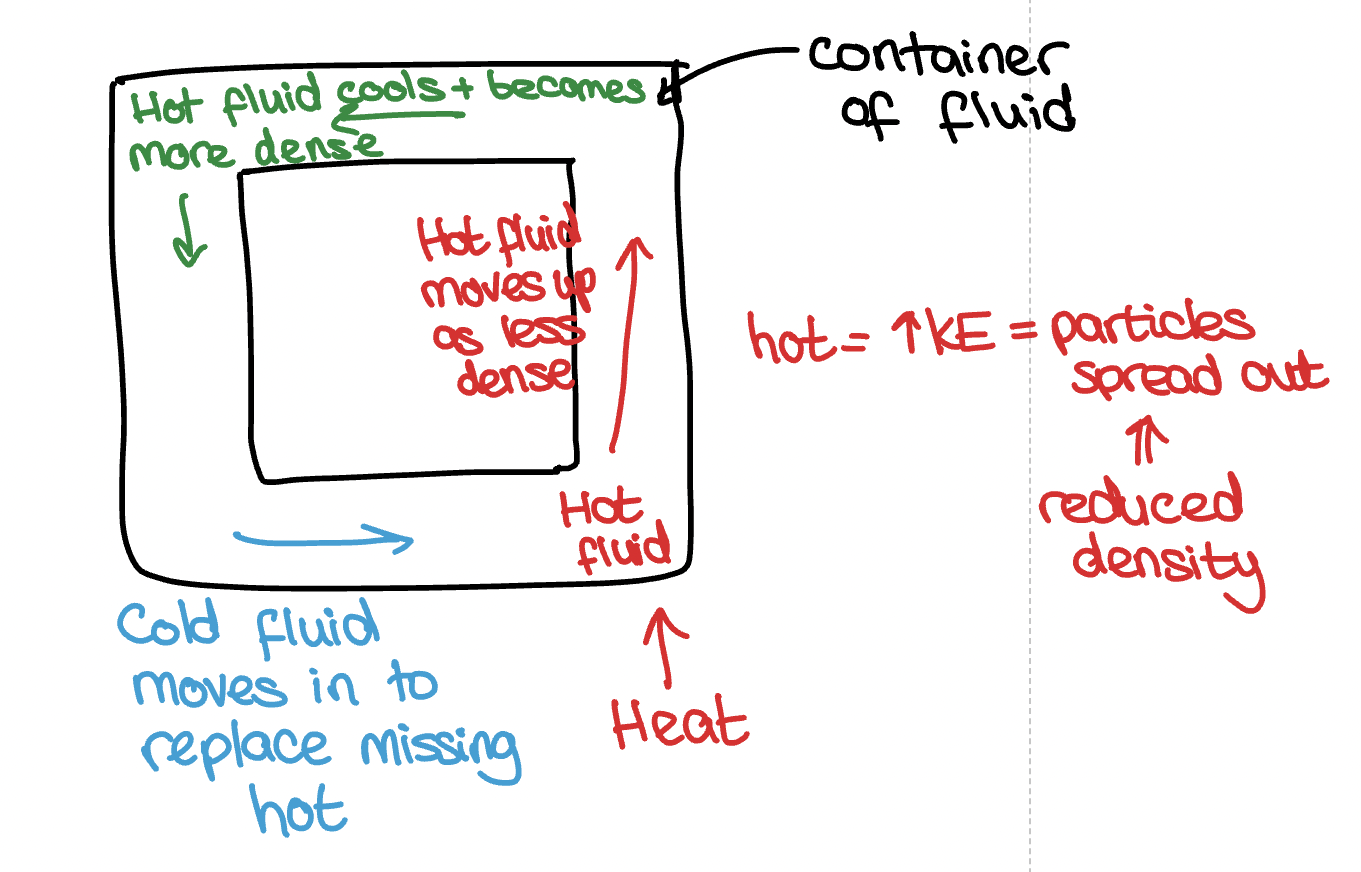 container
of fluid
Hot fluid cools + becomes
more dense
Hot fluid
moves up
as less
dense
hot = ↑ KE = particles
spread out
reduced
density
Hot
fluid
Cold fluid
moves in to
replace missing
hot
Heat